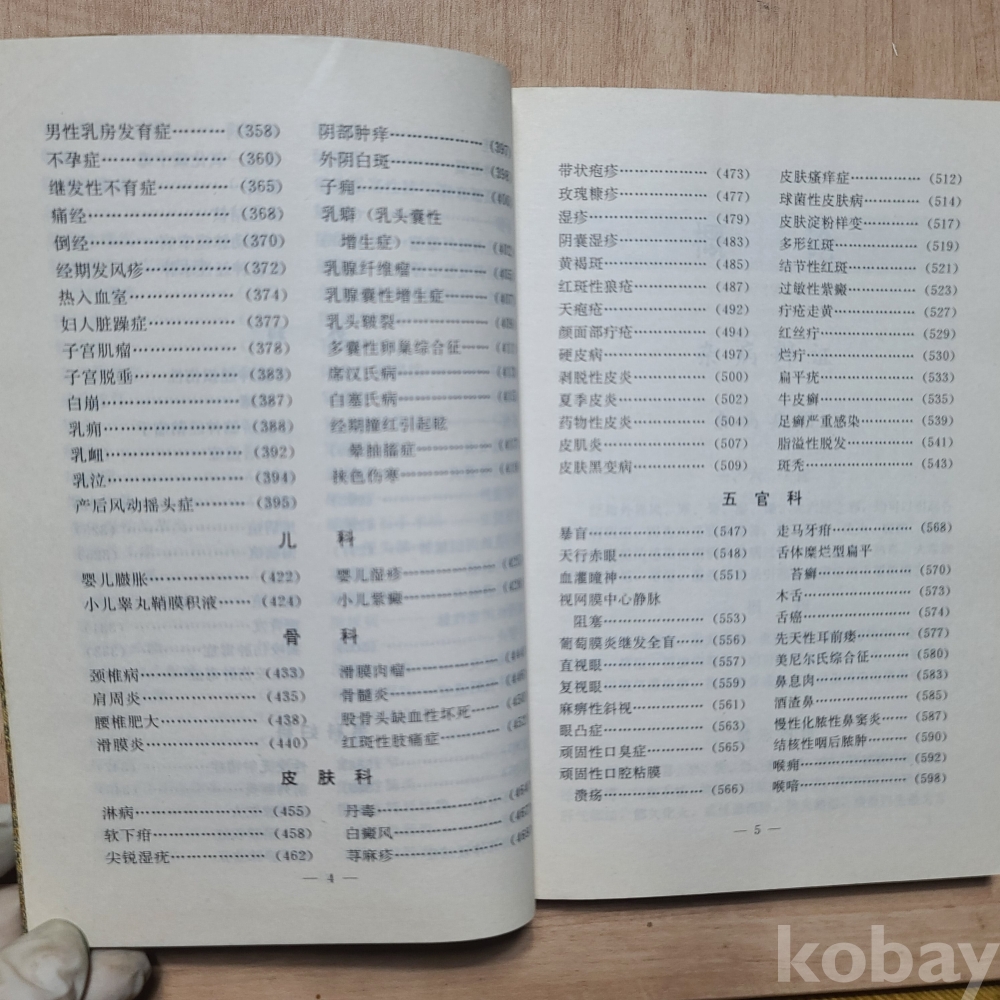 男性乳房发育症………(358)
不孕症…………………(360)
继发性不育症…………(365)
痛经……………………(368)
倒经……………………(370)
经期发风疹……………(372)
热入血室………………(374)
妇人脏躁症……………(377)
子宫肌瘤………………(378)
子宫脱垂………………(383)
白崩……………………(387)
乳痈……………………(388)
乳衄……………………(392)
乳泣……………………(394)
产后风动摇头症………(395)
阴部肿痒………………(397)
外阴白斑………………(398)
子痫……………………
乳癖（乳头囊性
增生症）………………
乳腺纤维瘤……………
乳腺囊性增生症………
乳头皲裂………………
多囊性卵巢综合征……
席汉氏病………………
白塞氏病………………
经期撞红引起眩
晕抽搐症………………
挟色伤寒………………
儿 科
婴儿臌胀………………(422)
小儿睾丸鞘膜积液……(424)
婴儿湿疹………………
小儿紫癜………………
骨 科
颈椎病…………………(433)
肩周炎…………………(435)
腰椎肥大………………(438)
滑膜炎…………………(440)
滑膜肉瘤………………
骨髓炎…………………
股骨头缺血性坏死……
红斑性肢痛症…………
皮 肤 科
淋病……………………(455)
软下疳…………………(458)
尖锐湿疣………………(462)
丹毒……………………
白癜风…………………
荨麻疹…………………
— 4 —
带状疱疹………………(473)
玫瑰糠疹………………(477)
湿疹……………………(479)
阴囊湿疹………………(483)
黄褐斑…………………(485)
红斑性狼疮……………(487)
天疱疮…………………(492)
颜面部疔疮……………(494)
硬皮病…………………(497)
剥脱性皮炎……………(500)
夏季皮炎………………(502)
药物性皮炎……………(504)
皮肌炎…………………(507)
皮肤黑变病……………(509)
皮肤瘙痒症……………(512)
球菌性皮肤病…………(514)
皮肤淀粉样变…………(517)
多形红斑………………(519)
结节性红斑……………(521)
过敏性紫癜……………(523)
疔疮走黄………………(527)
红丝疔…………………(529)
烂疔……………………(530)
扁平疣…………………(533)
牛皮癣…………………(535)
足癣严重感染…………(539)
脂溢性脱发……………(541)
斑秃……………………(543)
五 官 科
暴盲……………………(547)
天行赤眼………………(548)
血灌瞳神………………(551)
视网膜中心静脉
阻塞……………………(553)
葡萄膜炎继发全盲……(556)
直视眼…………………(557)
复视眼…………………(559)
麻痹性斜视……………(561)
眼凸症…………………(563)
顽固性口臭症…………(565)
顽固性口腔粘膜
溃疡……………………(566)
走马牙疳………………(568)
舌体糜烂型扁平
苔癣……………………(570)
木舌……………………(573)
舌癌……………………(574)
先天性耳前瘘…………(577)
美尼尔氏综合征………(580)
鼻息肉…………………(583)
酒渣鼻…………………(585)
慢性化脓性鼻窦炎……(587)
结核性咽后脓肿………(590)
喉痈……………………(592)
喉喑……………………(598)
— 5 —
kobay